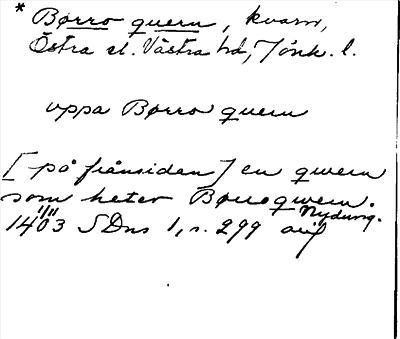 * Børro quern, kvarn,
Östra el. Västra hd, Jönk. l.
uppa Børro quern
[på frånsidan] en qwern
som heter Børroqwern.
Nydung.
1403 SDns 1, s. 299 avf